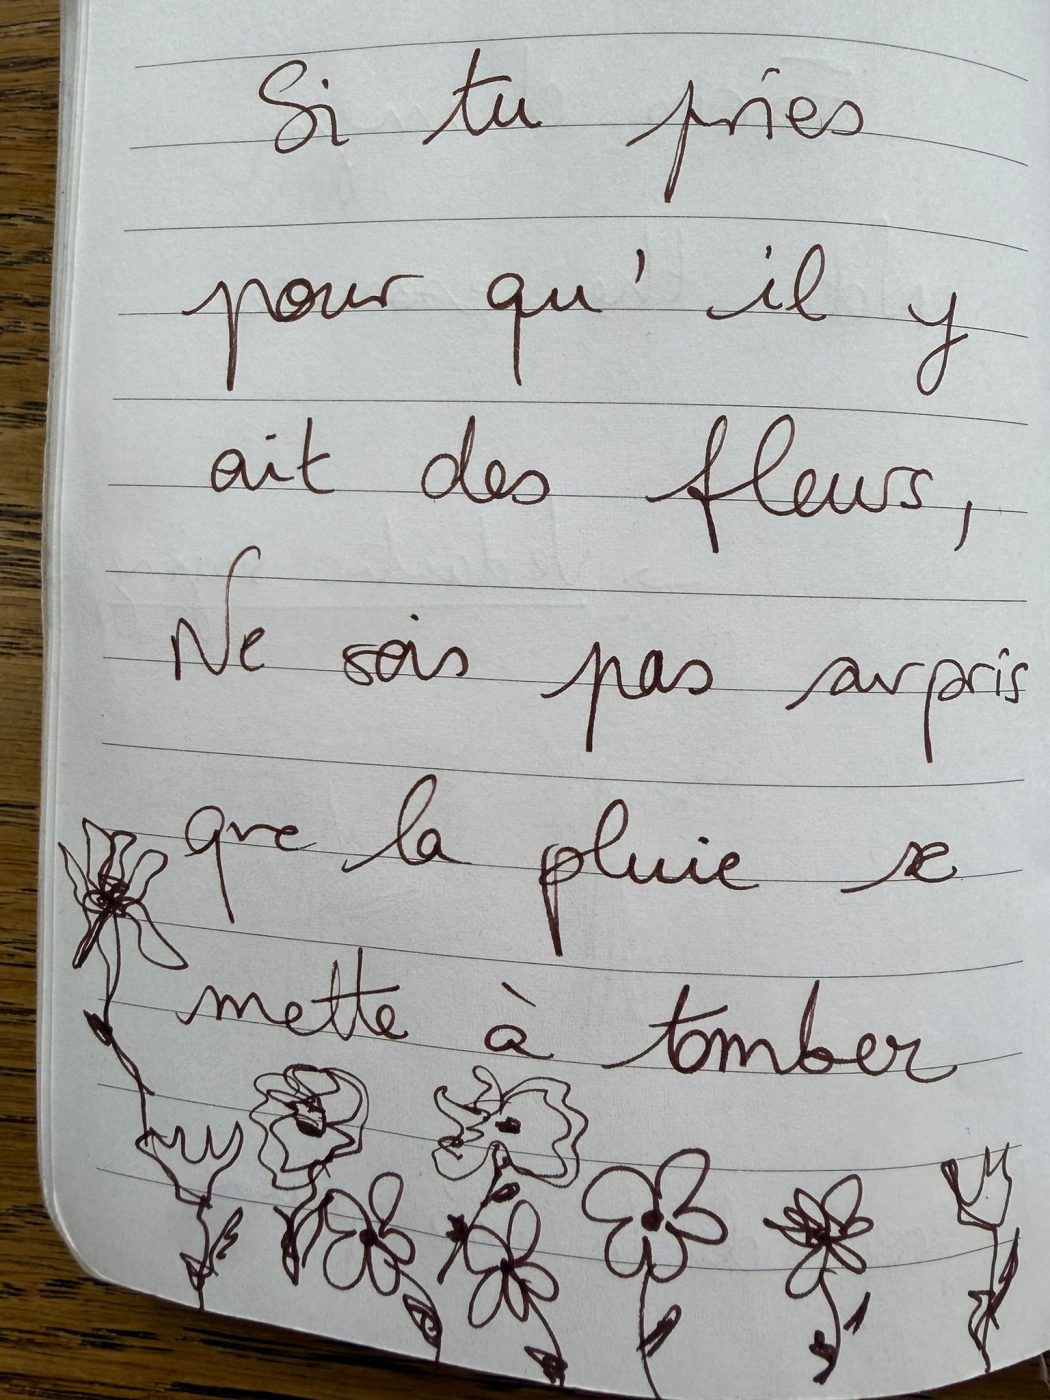 Si tu pries
pour qu'il y
ait des fleurs,
Ne sois pas surpris
que la pluie se
mette à tomber